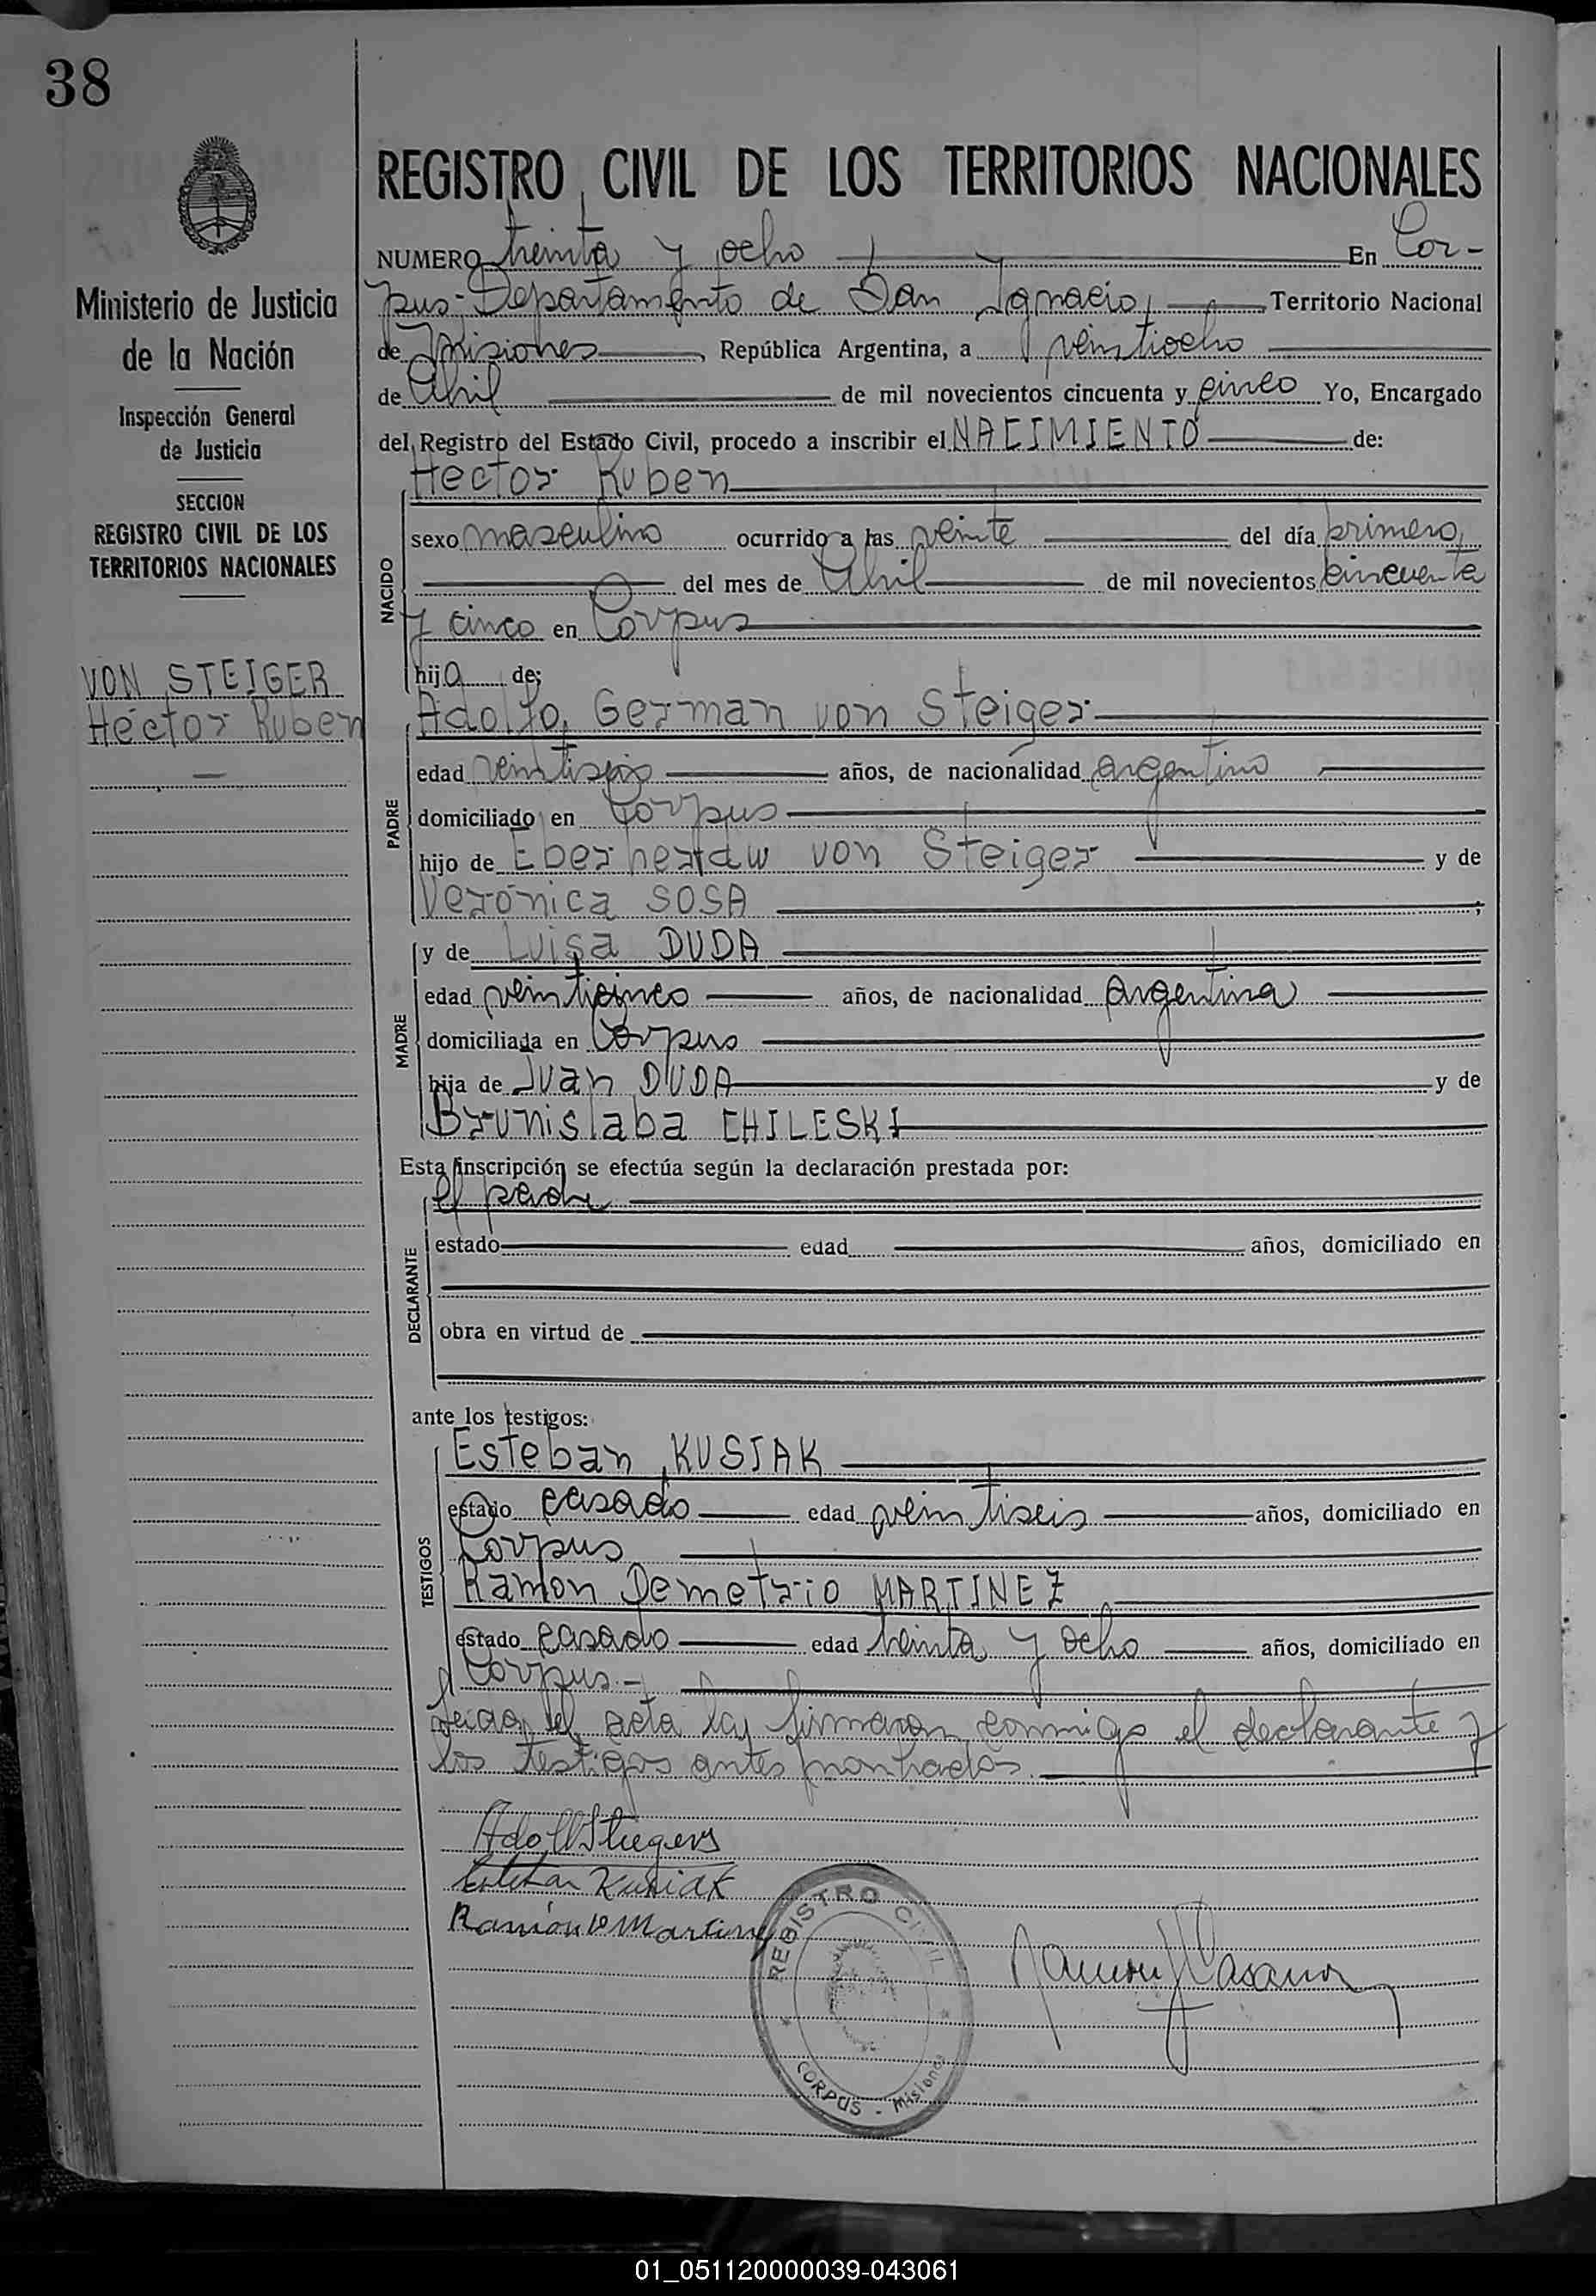 38
REGISTRO CIVIL DE LOS TERRITORIOS NACIONALES
Ministerio de Justicia
de la Nación
Inspección General
de Justicia
SECCION
REGISTRO CIVIL DE LOS
TERRITORIOS NACIONALES
VON STEIGER
Héctor Ruben
NUMERO treinta y ocho En Cor-
pus- Departamento de San Ignacio, Territorio Nacional
de Misiones, República Argentina, a veintiocho
de Abril de mil novecientos cincuenta y cinco Yo, Encargado
del Registro del Estado Civil, procedo a inscribir el NACIMIENTO de:
NACIDO
Hector Ruben
sexo masculino ocurrido a las veinte del día primero
del mes de Abril de mil novecientos cincuenta
y cinco en Corpus
hijo de:
PADRE
Adolfo German von Steiger
edad veintiseis años, de nacionalidad argentino
domiciliado en Corpus
hijo de von Steiger y de
Verónica SOSA
MADRE
y de Luisa DUDA
edad veinticinco años, de nacionalidad argentina
domiciliada en Corpus
hija de Juan DUDA y de
Brunislaba CHILESKI
Esta inscripción se efectúa según la declaración prestada por:
DECLARANTE
el padre
estado edad años, domiciliado en
obra en virtud de
ante los testigos:
TESTIGOS
Esteban KUSIAK
estado casado edad veintiseis años, domiciliado en
Corpus
Ramon Demetrio MARTINEZ
estado casado edad treinta y ocho años, domiciliado en
Corpus.-
Leida el acta la firmaron conmigo el declarante y
los testigos antes nombrados.
Esteban Kusiak
Ramón D Martinez
REGISTRO CIVIL
CORPUS - Misiones
01_051120000039-043061